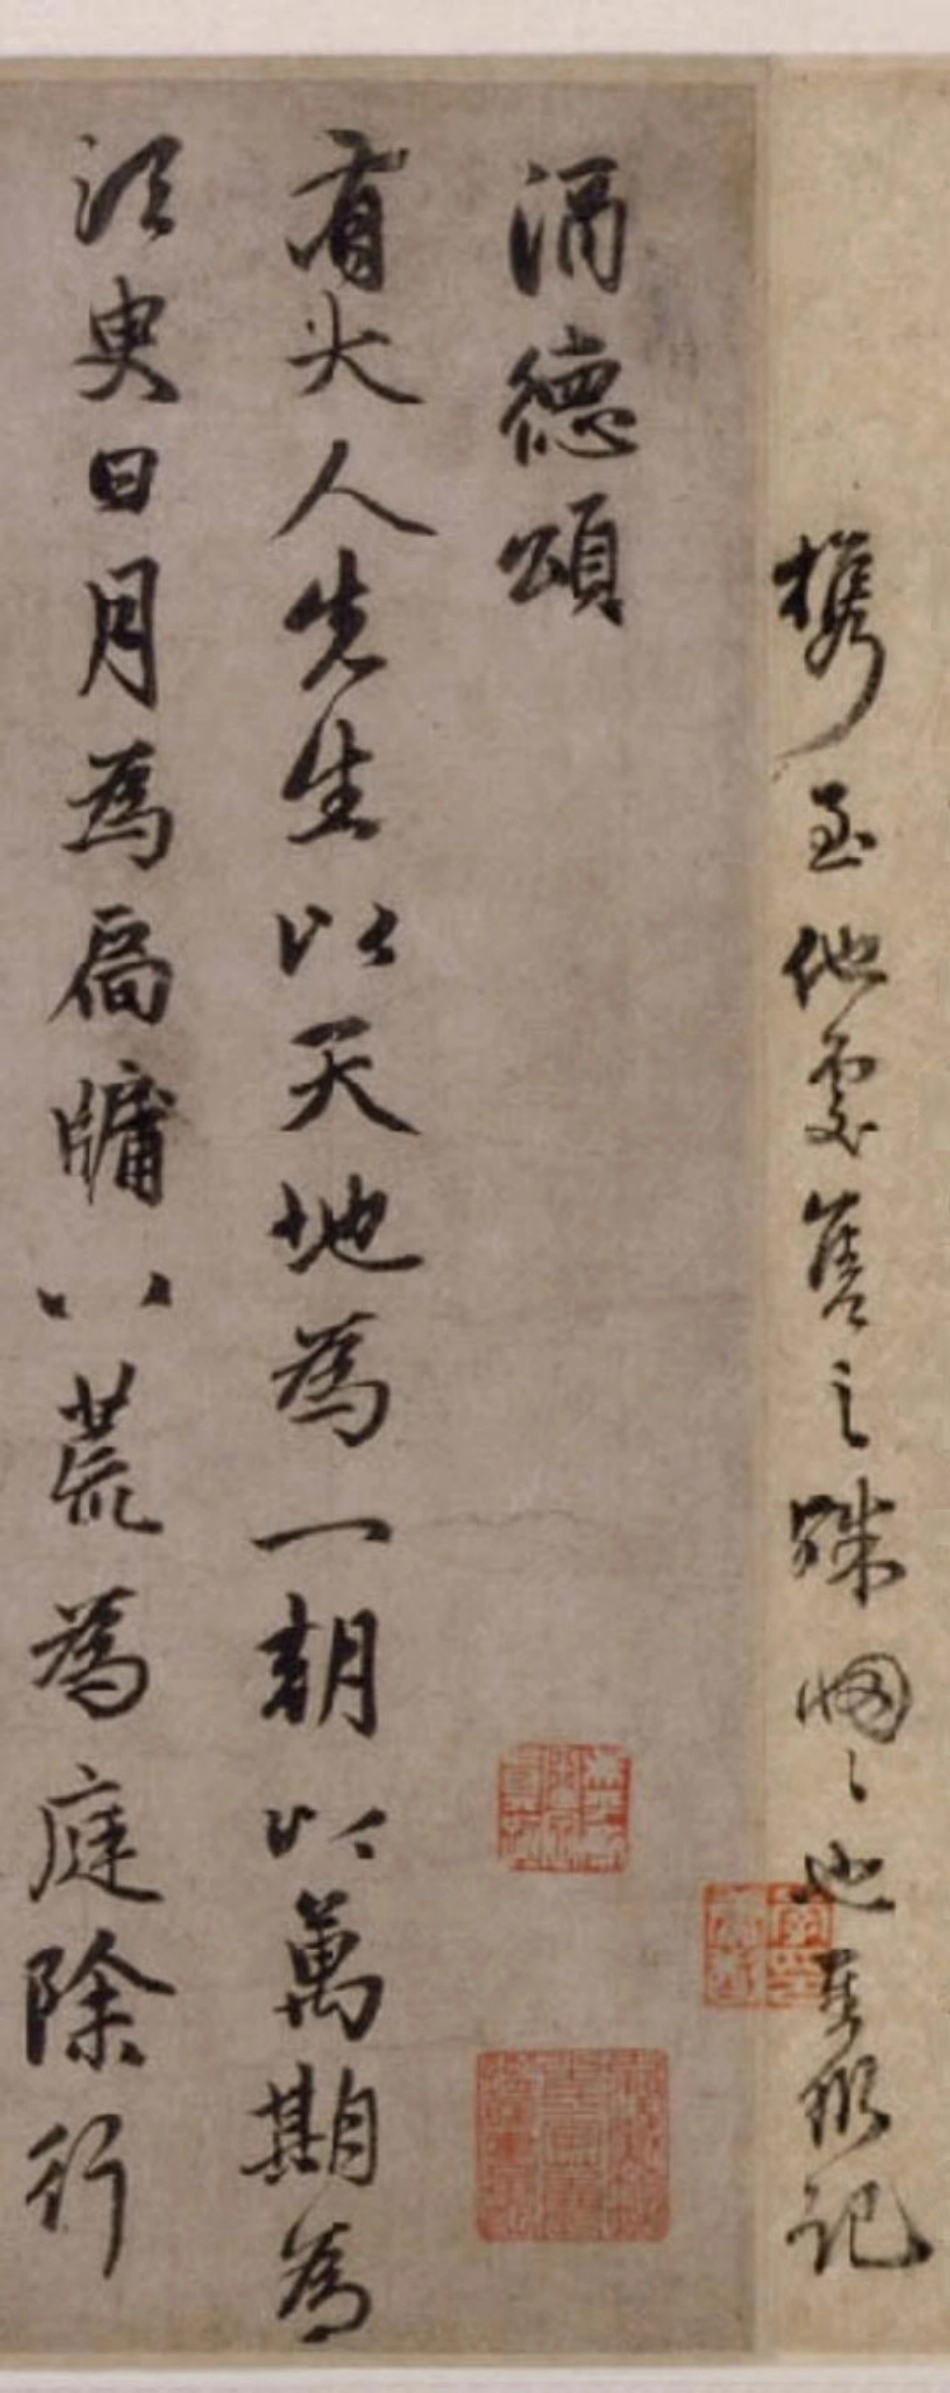 攜至他處售之殊惘〻也 記
酒德頌
有大人先生以天地為一朝以萬期為
須臾日月為扃牖八荒為庭除行